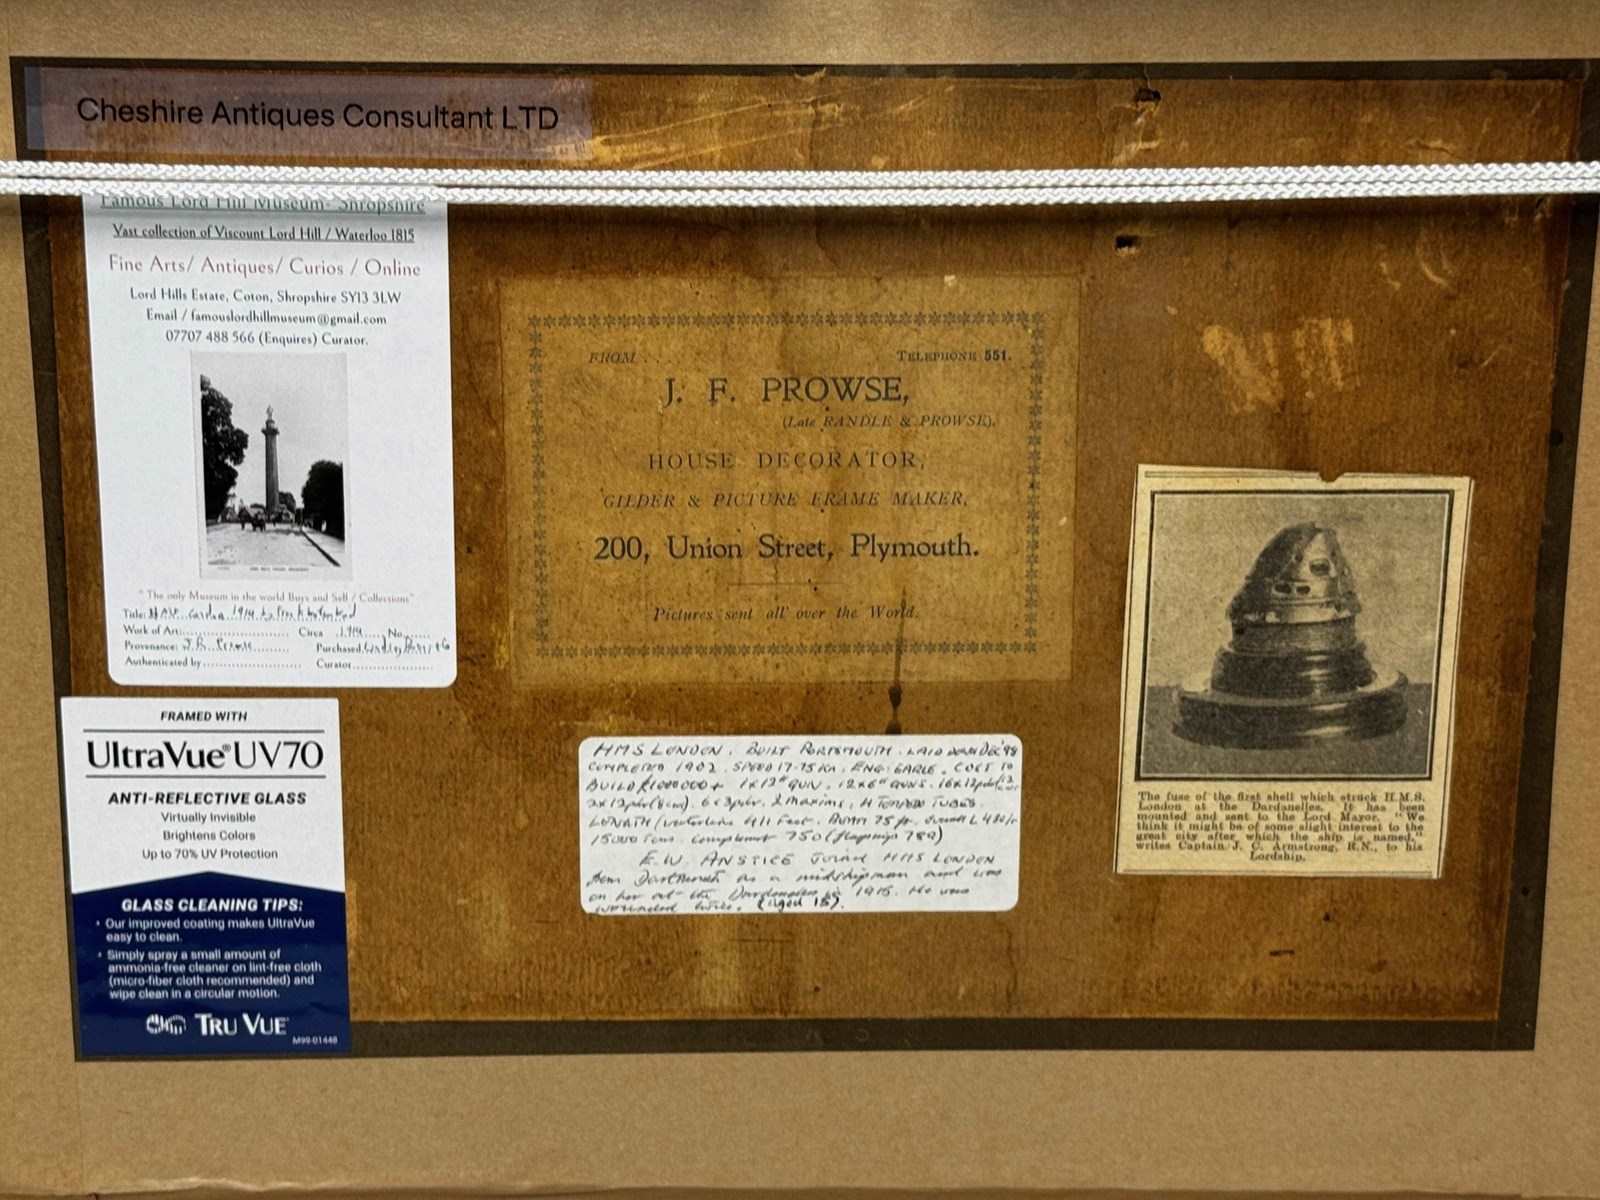 Cheshire Antiques Consultant LTD
Famous Lord Hill Museum- Shropshire
Vast collection of Viscount Lord Hill / Waterloo 1815
Fine Arts/ Antiques/ Curios / Online
Lord Hills Estate, Coton, Shropshire SY13 3LW
Email / famouslordhillmuseum@gmail.com
07707 488 566 (Enquires) Curator.
" The only Museum in the world Buys and Sell / Collections"
Title: 1914 by
Work of Art: Circa 1914 No
Provenance: Purchased
Authenticated by Curator
FRAMED WITH
UltraVue® UV70
ANTI-REFLECTIVE GLASS
Virtually Invisible
Brightens Colors
Up to 70% UV Protection
GLASS CLEANING TIPS:
• Our improved coating makes UltraVue
easy to clean.
• Simply spray a small amount of
ammonia-free cleaner on lint-free cloth
(micro-fiber cloth recommended) and
wipe clean in a circular motion.
TRU VUE
M99-01448
FROM . . . . TELEPHONE 551.
J. F. PROWSE,
(Late RANDLE & PROWSE),
HOUSE DECORATOR,
GILDER & PICTURE FRAME MAKER,
200, Union Street, Plymouth.
Pictures sent all over the World.
HMS LONDON. BUILT PORTSMOUTH. LAID DOWN DEC '98
COMPLETED 1902. SPEED 17-75 Kn. ENG: EARLE. COST TO
BUILD £1000000+ 12" GUN. 12x6" GUNS. 16x12pdr
2x12pdr(8cwt). 6x3pdr. 2 maxims, 4 TORPEDO TUBES.
LENGTH/waterline 411 feet. BEAM 75 ft.
15000 Tons. Complement 750 (flagship 789)
E.W. ANSTICE Joined HMS LONDON
from Dartmouth as a midshipman and was
on her at the Dardanelles in 1915. He was
wounded twice. (aged 15).
The fuse of the first shell which struck H.M.S.
London at the Dardanelles. It has been
mounted and sent to the Lord Mayor. "We
think it might be of some slight interest to the
great city after which the ship is named,"
writes Captain J. G. Armstrong, R.N., to his
Lordship.